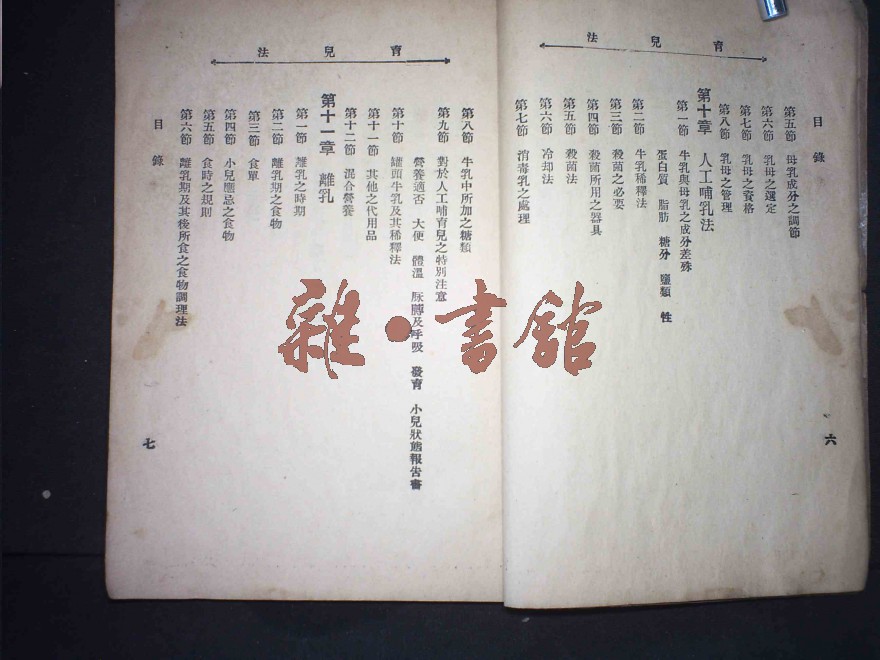 育兒法
目錄
第五節 母乳成分之調節
第六節 乳母之選定
第七節 乳母之資格
第八節 乳母之管理
第十章 人工哺乳法
第一節 牛乳與母乳之成分差殊
蛋白質 脂肪 糖分 鹽類 性
第二節 牛乳稀釋法
第三節 殺菌之必要
第四節 殺菌所用之器具
第五節 殺菌法
第六節 冷却法
第七節 消毒乳之處理
六
育兒法
第八節 牛乳中所加之糖類
第九節 對於人工哺育兒之特別注意
營養適否 大便 體溫 脈膊及呼吸 發育 小兒狀態報告書
第十節 罐頭牛乳及其稀釋法
第十一節 其他之代用品
第十二節 混合營養
第十一章 離乳
第一節 離乳之時期
第二節 離乳期之食物
第三節 食單
第四節 小兒應忌之食物
第五節 食時之規則
第六節 離乳期及其後所食之食物調理法
目錄
七
雜·書館